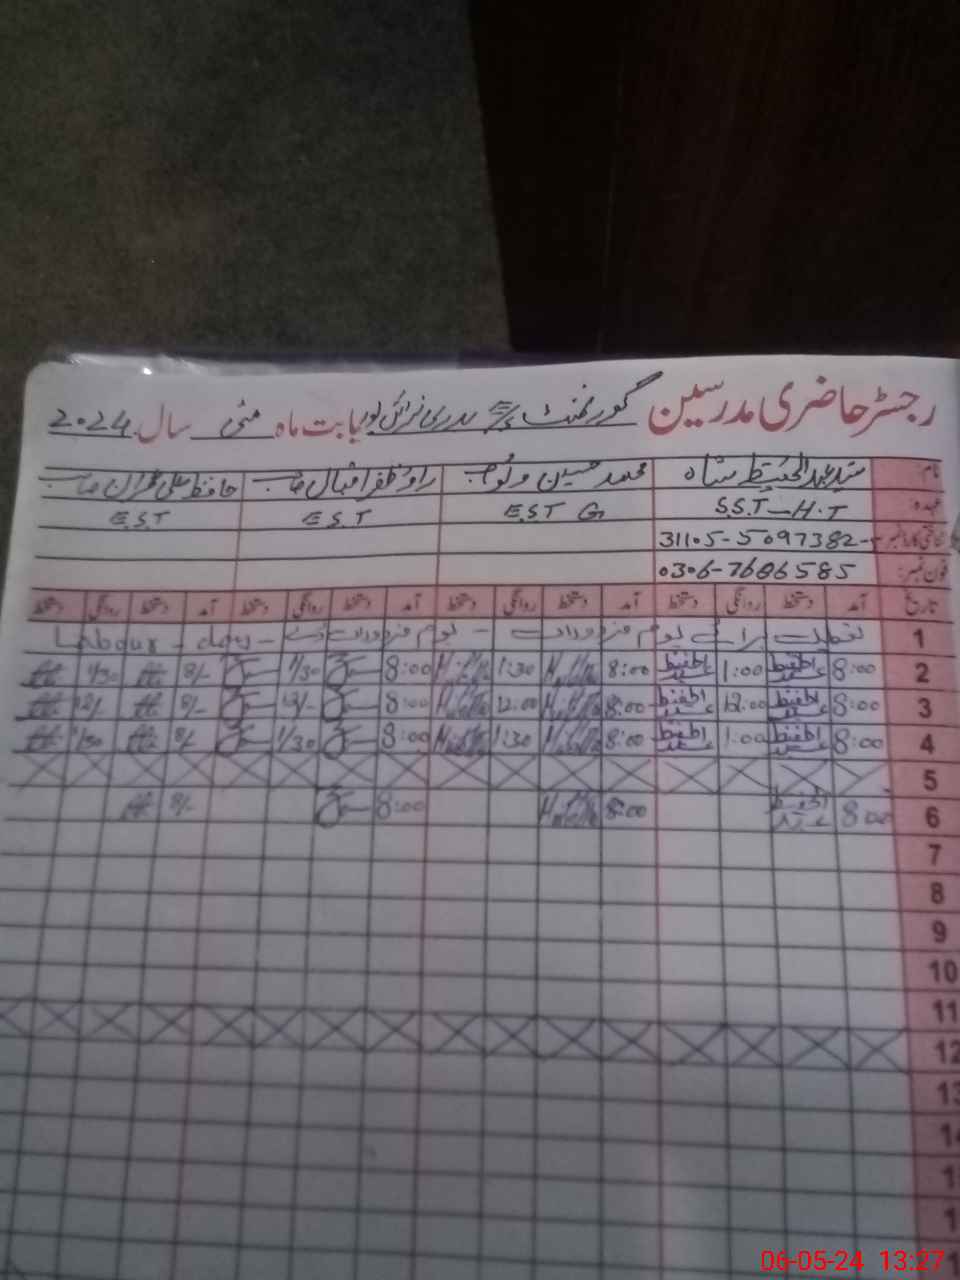 رجسٹر حاضری مدرسین گورنمنٹ بابت ماہ مئی سال 2024
نام: سید عبدالحفیظ شاہ محمد حسین راؤ ظفر اقبال صاحب حافظ علی عمران صاحب
عہدہ: S.S.T - H.T E.S.T G E.S.T E.S.T
شناختی کارڈ نمبر: 31105-5097382-
فون نمبر: 0306-7686585
تاریخ آمد دستخط روانگی دستخط آمد دستخط روانگی دستخط آمد دستخط روانگی دستخط آمد دستخط روانگی دستخط
1 یوم مزدوراں - یوم مزدوراں Labour - day -
2 8:00 1:00 8:00 1:30 8:00 1/30 8/- 1/30
3 8:00 12:00 8:00 12:00 8:00 12/- 8/- 12/-
4 8:00 1:00 8:00 1:30 8:00 1/30 8/- 1/30
5
6 8:00 8:00 8:00 8/-
7
8
9
10
11
12
13
06-05-24 13:27